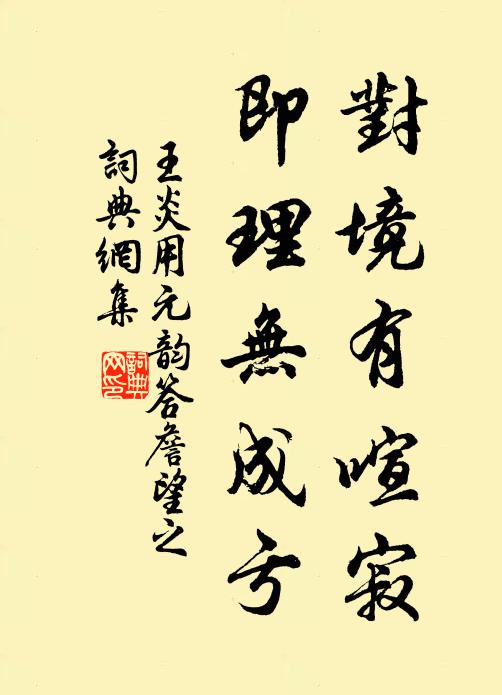 對境有喧寂
即理無成亏
王炎用元韵答詹望之
詞典網集
詞典网印